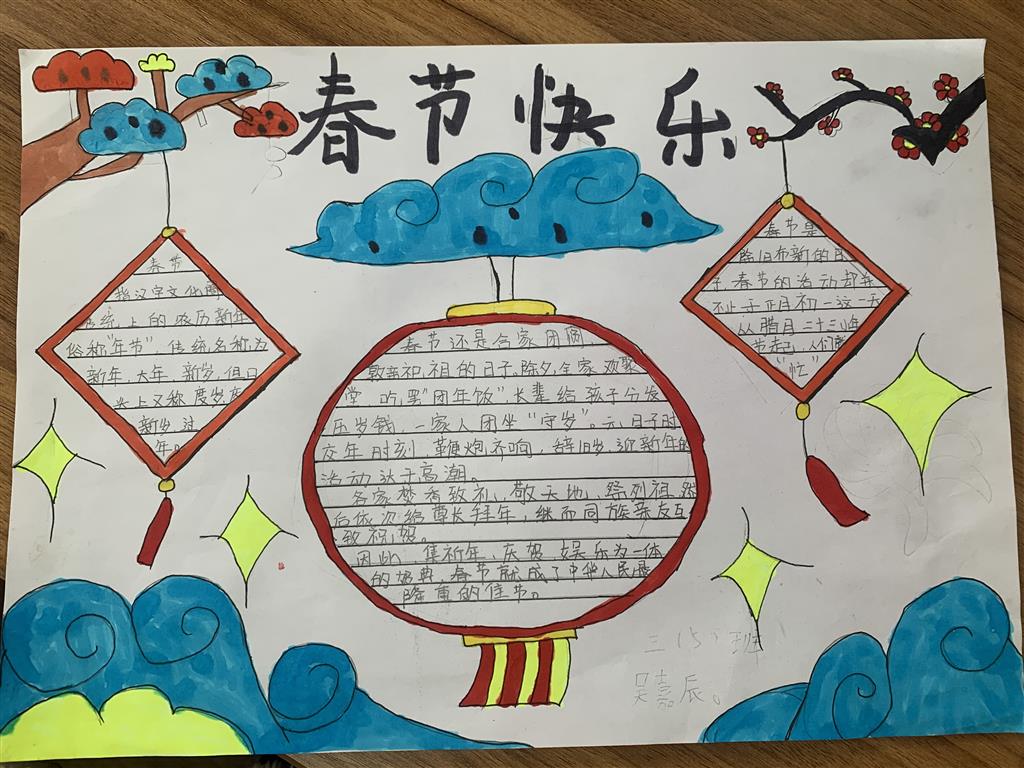 春节快乐
春节
指汉字文化圈
传统上的农历新年
俗称"年节",传统名称为
新年、大年、新岁,但口
头上又称度岁、庆
新岁、过
年。
春节还是合家团圆
敦亲和祖的日子.除夕,全家欢聚
堂,吃罢"团年饭",长辈给孩子分发
压岁钱,一家人团坐"守岁"。元日子时
交年时刻,鞭炮齐响,辞旧岁、迎新年的
活动达于高潮。
各家焚香致礼,敬天地、祭列祖,然
后依次给尊长拜年,继而同族亲友互
致祝贺。
因此,集祈年、庆贺、娱乐为一体
的盛典,春节就成了中华人民最
隆重的佳节。
春节是
除旧布新的日
子,春节的活动却并
不止于正月初一这一天
从腊月二十三小年
节起,人们便
"忙"
三(5)班
吴嘉辰。